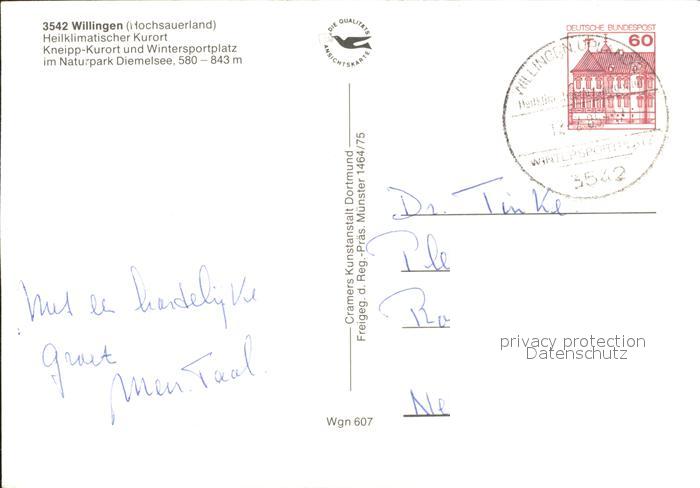 3542 Willingen (Hochsauerland)
Heilklimatischer Kurort
Kneipp-Kurort und Wintersportplatz
im Naturpark Diemelsee, 580 – 843 m
DIE QUALITÄTS
ANSICHTSKARTE
DEUTSCHE BUNDESPOST
60
WILLINGEN
WINTERSPORTPLATZ
3542
Met een hartelijke
groet
Cramers Kunstanstalt Dortmund
Freigeg. d. Reg.-Präs. Münster 1464/75
Wgn 607
Dr. Tinke
Ple
Ro
Ne
privacy protection
Datenschutz